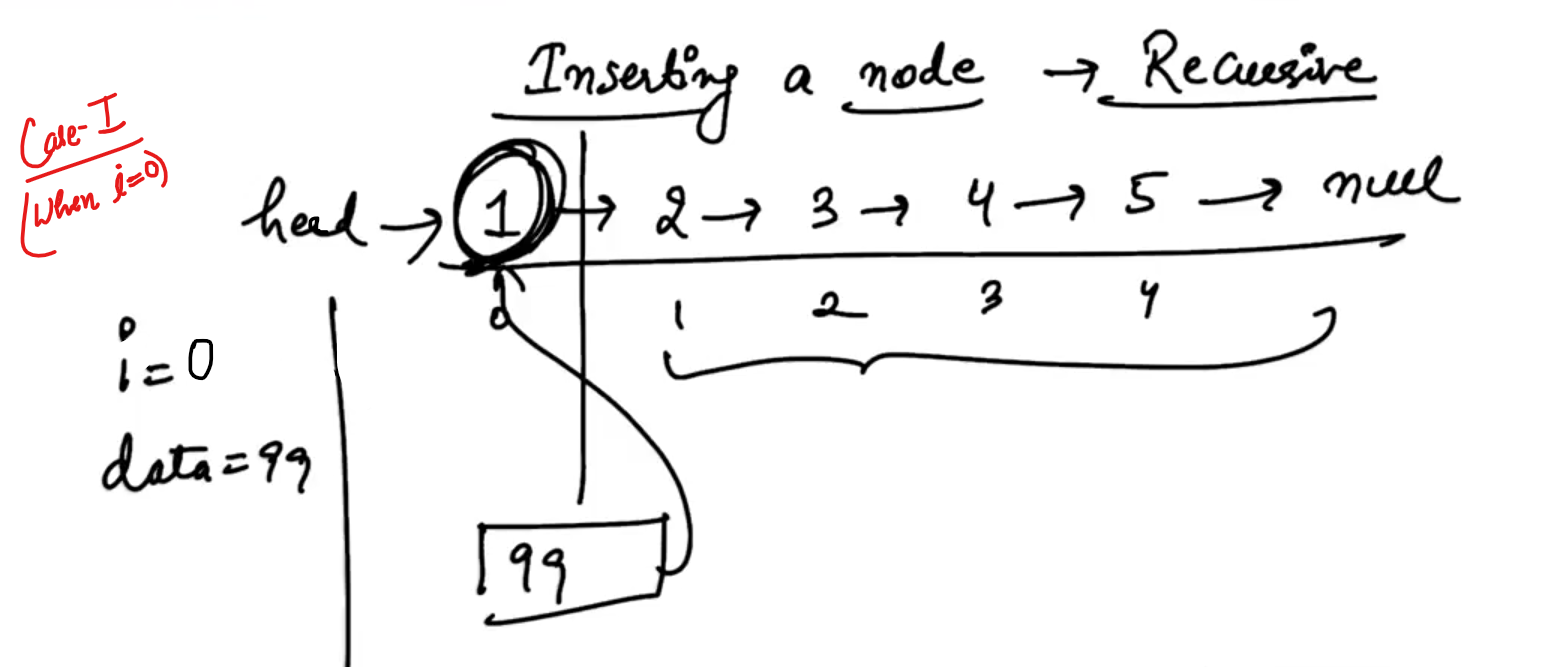 Inserting a node → Recursive
Case-I
(when i=0)
head → 1 → 2 → 3 → 4 → 5 → null
0 1 2 3 4
i=0
data=99
99